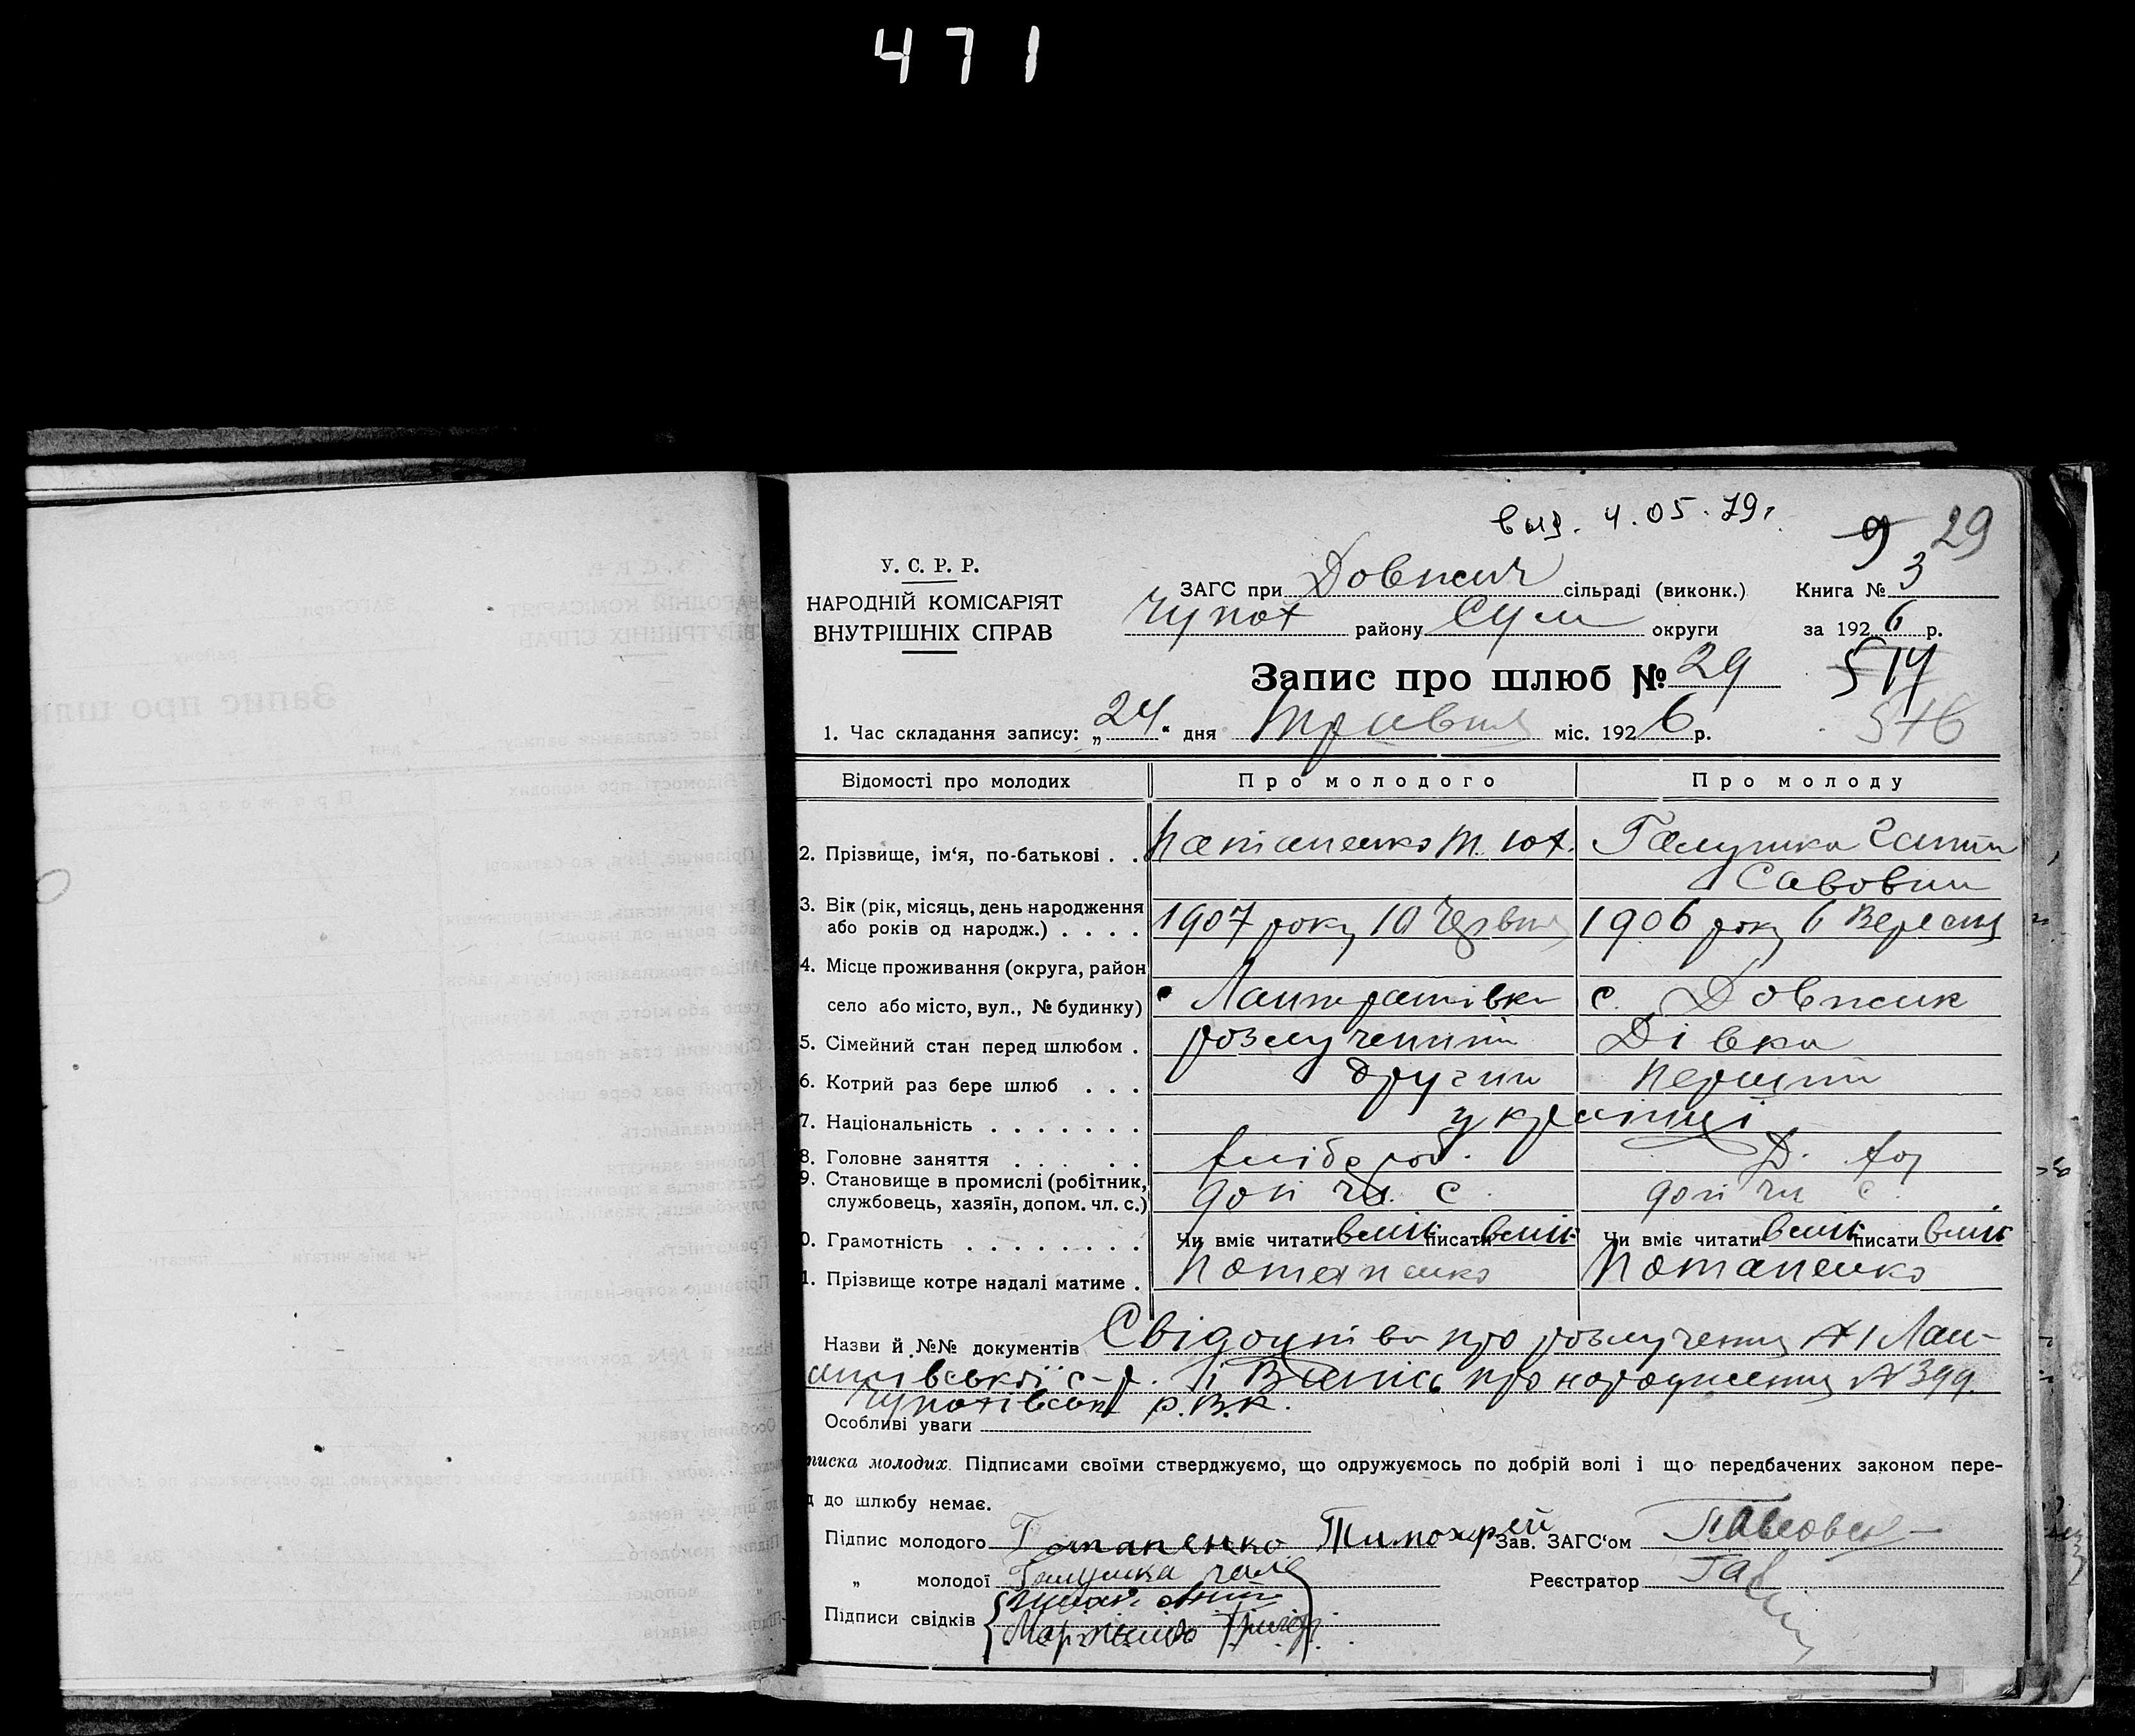 471
4.05.79г.
9 29
У. С. Р. Р.
НАРОДНІЙ КОМІСАРІЯТ
ВНУТРІШНІХ СПРАВ
ЗАГС при Довжич сільраді (виконк.) Книга № 3
Чупах району Сум округи за 1926 р.
Запис про шлюб № 29 514
576
1. Час складання запису: „24“ дня Травня міс. 1926 р.
Відомості про молодих Про молодого Про молоду
2. Прізвище, ім‘я, по-батькові . . Потапенко Т. Галушка
Савовни
3. Вік (рік, місяць, день народження
або років од народж.) . . . . 1907 року 10 Червня 1906 року 6 Вересня
4. Місце проживання (округа, район
село або місто, вул., № будинку) с. Довжик
5. Сімейний стан перед шлюбом . розлучений Дівка
6. Котрий раз бере шлюб . . . другий перший
7. Національність . . . . . . . українці
8. Головне заняття . . . . . хлібороб. Д.
9. Становище в промислі (робітник,
службовець, хазяїн, допом. чл. с.) доп чл. с. доп чл с.
0. Грамотність . . . . . . . . Чи вміє читати вміє писати вміє Чи вміє читати вміє писати вміє
1. Прізвище котре надалі матиме . Потапенко Потапенко
Назви й №№ документів Свідоцтво про розлучення № 1
с-р. й Запись про народження № 399.
р.В.К.
Особливі уваги
писка молодих. Підписами своїми стверджуємо, що одружуємось по добрій волі і що передбачених законом пере-
д до шлюбу немає.
Підпис молодого Потапенко Тимохрей Зав. ЗАГС‘ом
„ молодої Галушка Реєстратор
Підписи свідків